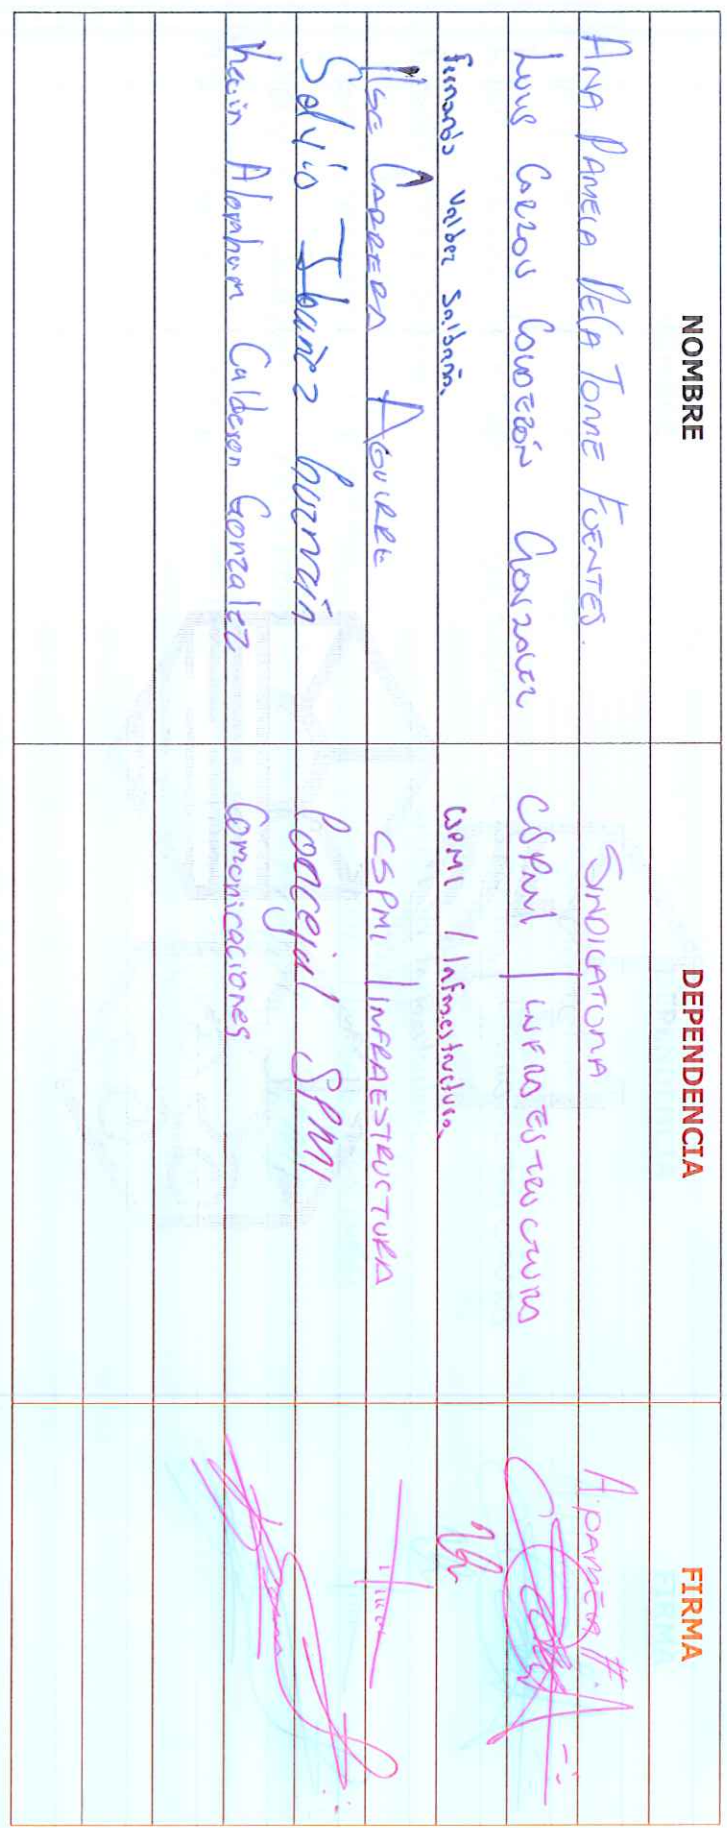 NOMBRE DEPENDENCIA FIRMA
ANA PAMELA DE LA TORRE FUENTES. SINDICATURA A. PAMELA
LUIS CARLOS CALDERÓN GONZALEZ CSPMI / INFRAESTRUCTURA
Fernando Valdez Saldaña CSPMI / Infraestructura
ILSE CARRERA AGUIRRE CSPMI / INFRAESTRUCTURA
Ibáñez Concejal SPMI
Kevin Calderon Gonzalez Comonicaciones